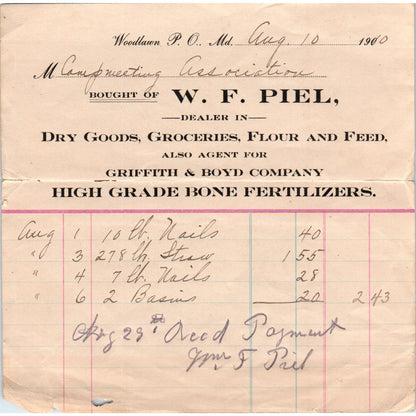 Woodlawn P. O., Md. Aug. 10 1900
M Campmeeting Association
BOUGHT OF W. F. PIEL,
DEALER IN
DRY GOODS, GROCERIES, FLOUR AND FEED,
ALSO AGENT FOR
GRIFFITH & BOYD COMPANY
HIGH GRADE BONE FERTILIZERS.
Aug 1 10 lb. Nails 40
" 3 278 lb. Straw 1 55
" 4 7 lb. Nails 28
" 6 2 Basins 20 2 43
Aug 29th Recd Payment
Wm F Piel